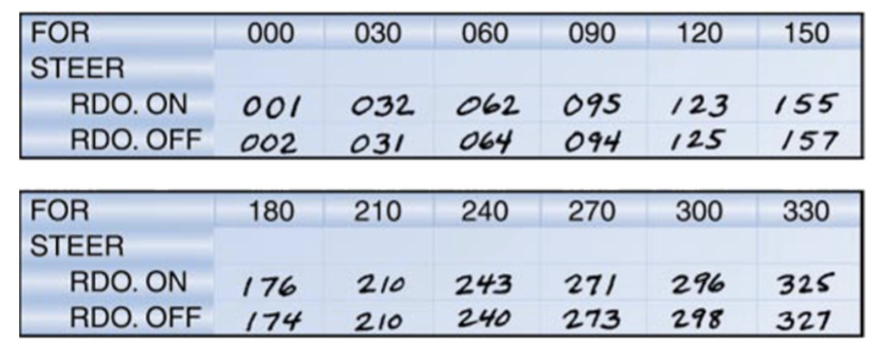 FOR 000 030 060 090 120 150
STEER
RDO. ON 001 032 062 095 123 155
RDO. OFF 002 031 064 094 125 157
FOR 180 210 240 270 300 330
STEER
RDO. ON 176 210 243 271 296 325
RDO. OFF 174 210 240 273 298 327